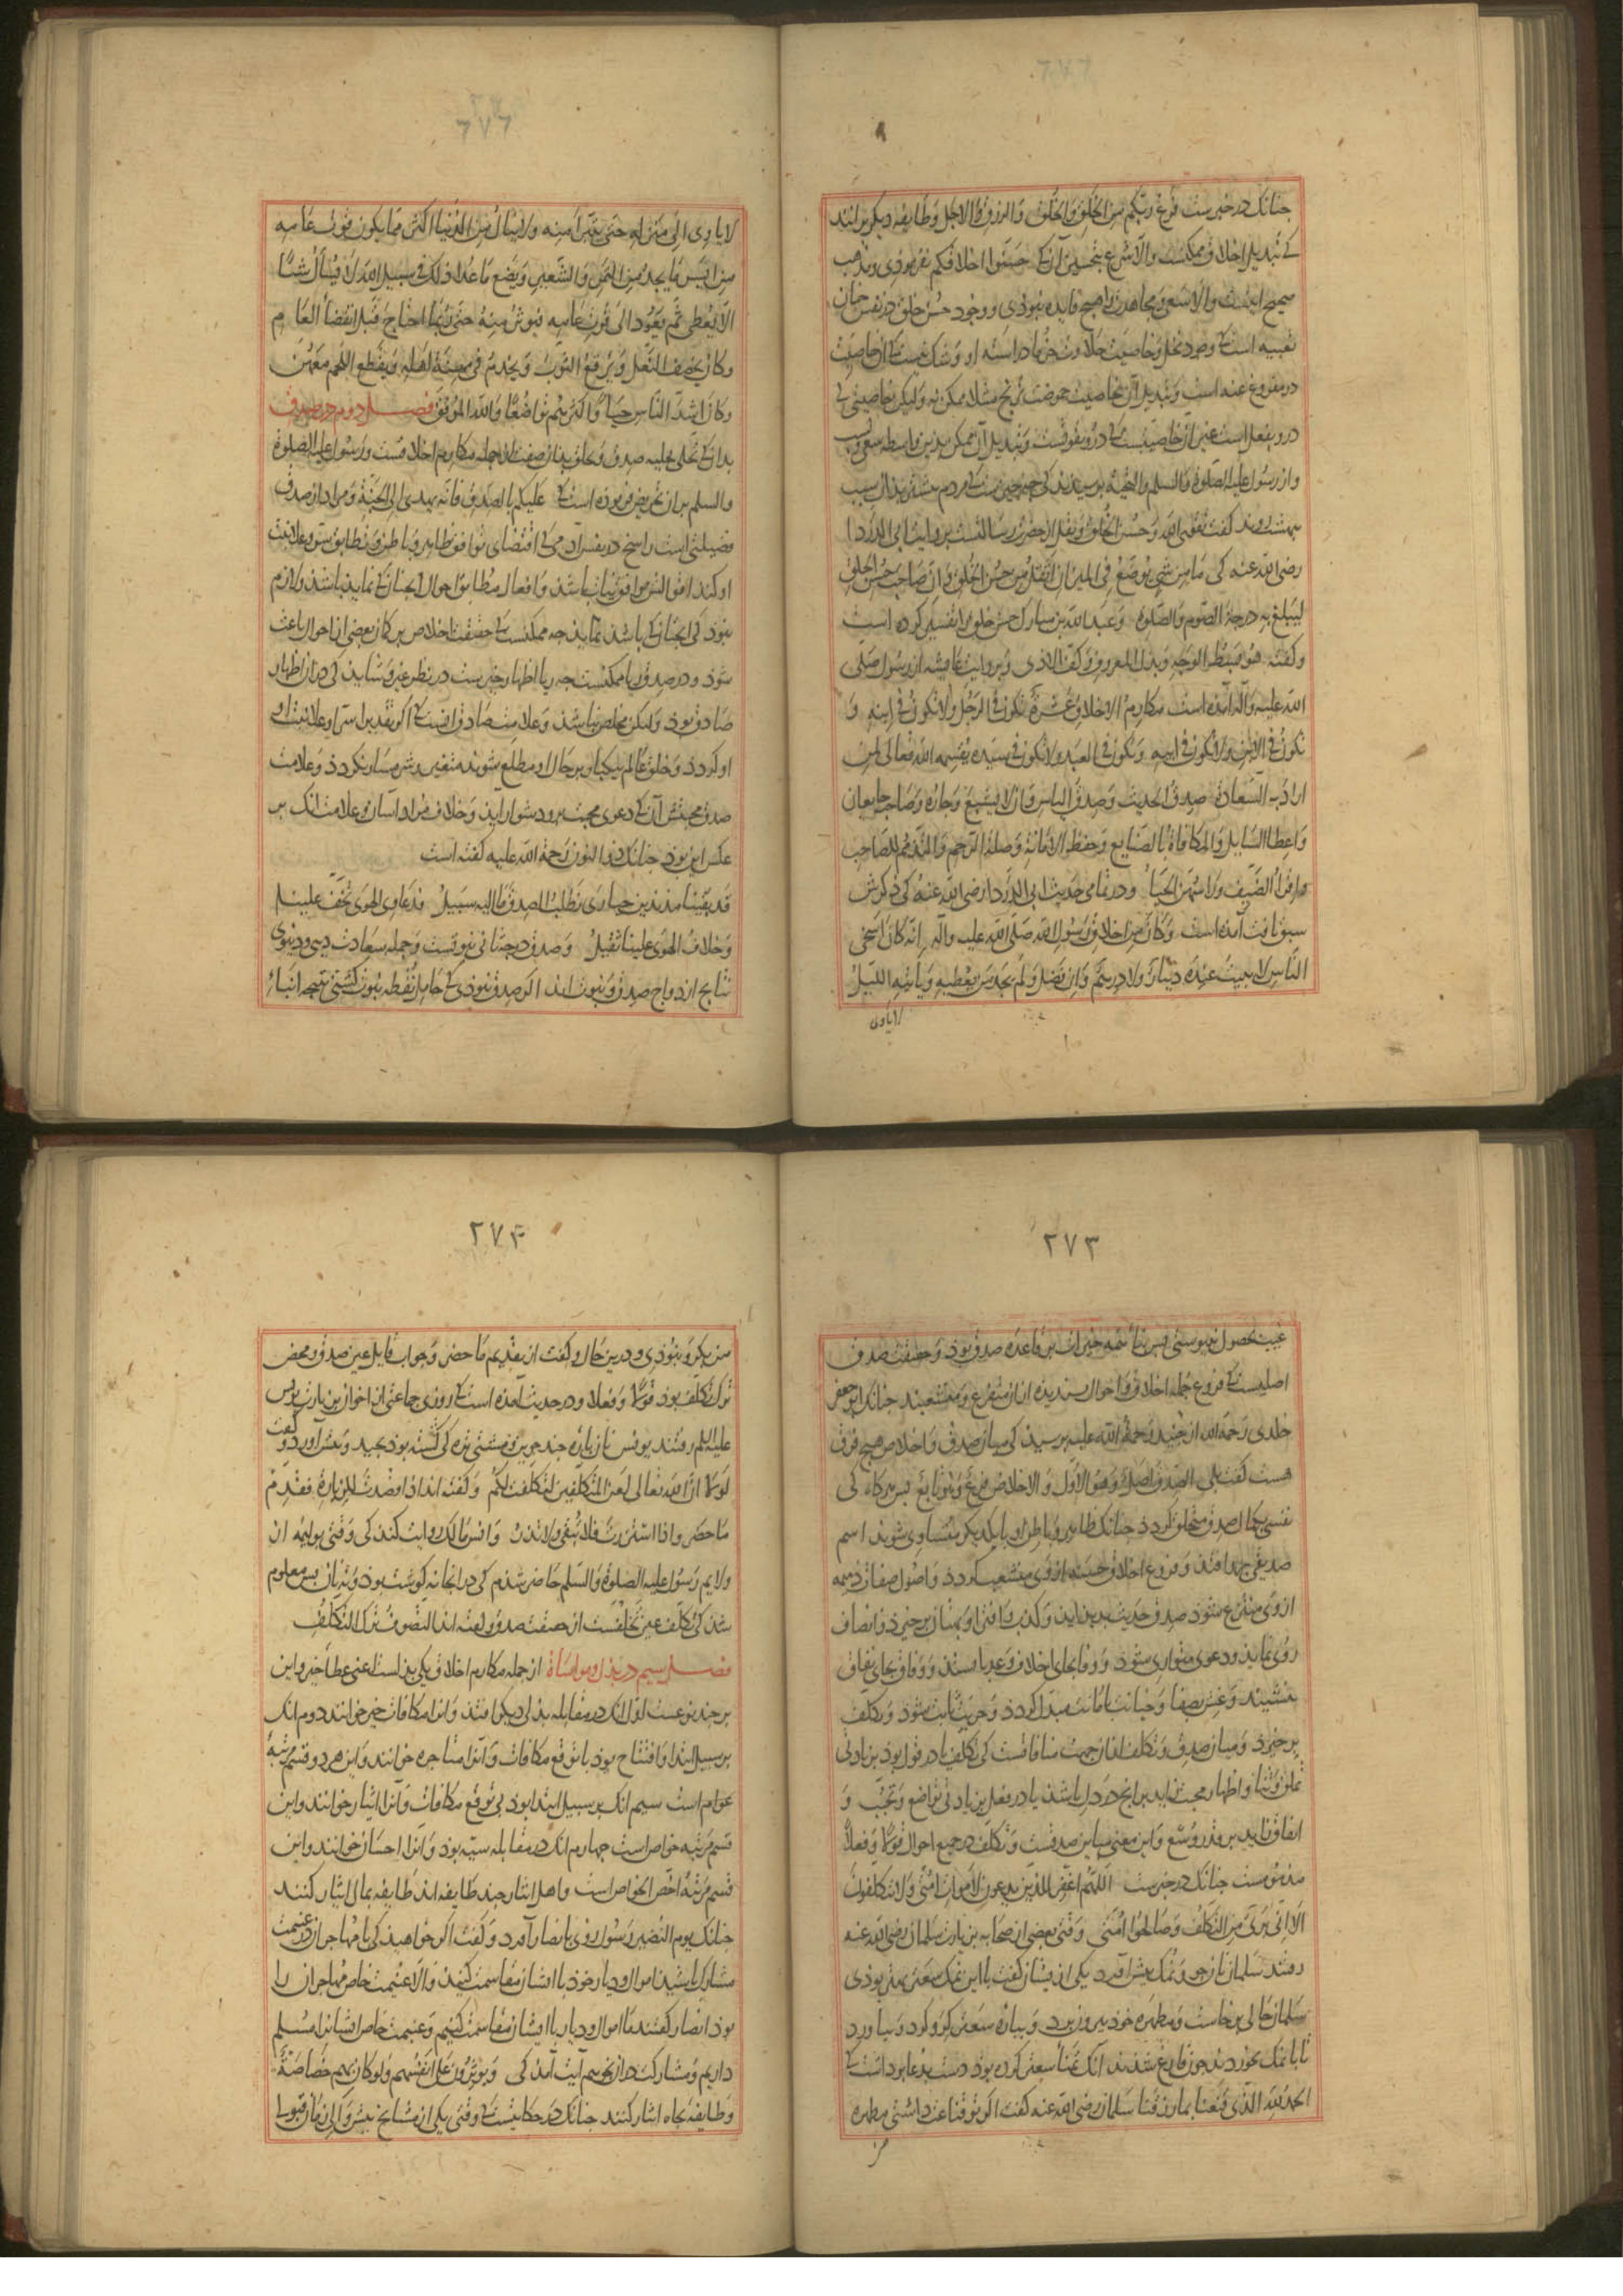 چنانک در خبرست فرغ ربکم من الخَلق وَالخُلق وَالرزق وَالاجل وَطایفه دیکر برانند
کی تبدیل اخلاق ممکنست والا شرع بتحسین آن کی حسّنوا اخلاقکم نفرموذی ومذهب
صحیح اینست والا سعی ومجاهدت را هیچ فایده نبوذی ووجود حُسن خلق در نفس چنان
تعبیه است کی وجود نخل وخاصیت حلاوت خرما در استه او وشک نیست کی آن خاصیت
در مفروغ عنه است وتبدیل آن بخاصیت حموضت ترنج مثلا ممکن نه ولیکن خاصیتی کی
درو بفعل است عین آن خاصیتست کی درو بقوتست وتبدیل آن ممکن بدین واسطه سعی وکسب
واز رسول علیه الصلوة والسلم والتحیّه برسیذند کی چه چیزست کی مردم بیشتر بذان سبب
ببهشت روند کفت تقوی الله وحُسن الخُلق ونقل از حضرت رسالتست بروایت ابی الدّردا
رضی الله عنه کی مَا مِن شی یوضَع فی المیزان اثقل من حسن الخلق وانّ صاحب حُسن الخلق
لیَبلغ به درجة الصّوم وَالصّلوة وَعبد الله بن مبارک حسن خلق را تفسیر کرده است
وکفته هُو بَسط الوجه وبذل المعروف وکفّ الاذی وبروایت عایشه از رسول صلی
الله علیه وآله آمذه است مکارم الاخلاق عَشرة تکون فی الرجُل ولا تکون فی ابنه وَ
تکون فی الابن ولا تکون فی ابیه وَتکون فی العبد ولا تکون فی سیّده یقسمه الله تعالی لمن
اراد به السّعادة صِدق الحدیث وَصدق الباس وَان لا یشبع وَجاره وَصاحبه جایعان
وَاعطا السّایل وَالمکافاة بالصّنایع وَحفظ الامانة وَصلة الرّحم وَالتذمّم للصّاحب
واقراءُ الضَّیف وَراسُهن الحیَاءُ ودر تمامی حدیث ابی الدّردا رضی الله عنه کی ذکرش
سبق یافت آمذه است وَکانَ من اخلاق رَسُول الله صَلّی الله علیه وآله انّه کانَ اسخی
الناس لا یبیتُ عنده دینارٌ ولا درهم وَان فضل وَلم یجد من یعطیه وَیاتیه اللیلُ
لا یاوی
لا یاوی الی منزله حتی یتبرا منه ولا ینال من الدُّنیا اکثر مما یکون قوت عامه
من ایسر ما یجد من التمر والشّعیر ویضع ما عدا ذلک فی سبیل الله لا یُسأل شیئًا
الّا یُعطی ثم یعُود الی قوت عامِه فیوثر منه حتی رُبّما احتاج قبل انقضاء العَام
وکان یخصف النّعل وَیرقع الثوبَ وَیخدم فی مهنة اهله ویقطع اللحم معهُن
وکانَ اشدّ النّاس حیاءً واکثرهُم تواضُعًا وَاللهُ الموفق فصـل دوم در صدق
بدان کی تحلی بحلیه صدق وتخلق بذان صفت از جمله مکارم اخلاقست ورسول علیه الصلوة
والسلم بران تحریض فرموده است کی علیکم بالصّدق فانّه یهدی الی الجنّة ومراد از صدق
فضیلتی است راسخ در نفس آدمی کی اقتضای توافق ظاهر وباطن وتطابق سرّ وعلانیت
او کند اقوالش موافق نیّات باشذ وَافعال مطابق احوال آنچنان کی نماید باشذ ولازم
نبوَذ کی آنچنان کی باشذ نماید چه ممکنست کی حقیقت اخلاص بر کتمان بعضی از احوال باعث
شوَذ ودر صدق ریا ممکنست چه ریا اظهار خیرست در نظر غیر وشاید کی در آن اظهار
صَادق بوذ ولیکن مخلص نباشذ وعلامت صَادق آنست کی اکر بتقدیر سرّ او علانیت
او کردذ وخلق عالم بیکبار بر حال او مطلع شوند متغیر وشرمسار نکردذ وعلامت
صدق محبتش آن کی دعوی محبت برو دشوار آید وخلاف مُراد آسان وعلامت آنک بر
عکس این بوذ چنانک ذو النون رَحمة الله علیه کفته است
قد بقینا مذبذبین حیاری نطلبُ الصدقَ ما الیه سبیلُ فدعاوی الهوی تخفُّ علینـا
وَخلافُ الهَوی علینا ثقیلُ وَصدق درجه ثانی نبوتست وجمله سعادت دینی ودنیوی
نتایج ازدواج صدق ونبوت اند اکر صدق نبوذی کی حامل نُطفه نبوت کشتی نتیجه انباءِ
۲۷۳
غیب بحصول نبیوستی بس بناء همه خیرات بر قاعده صدق بوذ وحقیقت صدق
اصلیست کی فروع جمله اخلاق واحوال بسندیده ازان متفرع ومتشعبند چنانک ابو جعفر
خلدی رَحمه الله از جُنید رَحمة الله علیه برسید کی میان صدق وَاخلاص هیچ فرق
هست کفت بلی الصّدق اصلٌ وَهو الاوّل وَالاخلاصُ فرع وَهو تابع بس هرکاه کی
نفسی بکمال صدق متخلق کردذ چنانک ظاهر وباطن او با یکدیکر متسَاوی شوند اسم
صدیقی برو افتذ وَفروع اخلاق حسنه از وی متشعب کردذ وَاصُول صفات ذمیمه
از وی منتزع شوذ صدق حدیث بدید آید وکذب وَافترا وبهتان برخیزذ وانصاف
روی نماید ودعوی متواری شود ووفا بجای اخلاف وعد بایستذ ووفاق بجای نفاق
بنشیند وغش بصفا وَخیانت بامانت مبدّل کردذ وحریّت ثابت شود وتکلف
برخیزذ ومیان صدق وَتکلف ازان جهت منافاتست کی تکلف یا در قول بوذ بزیادتی
تملق وثنا واظهار محبت زاید بر آنچ در دل باشذ یا در فعل بزیادتی تواضع وتحبّب وَ
انفاق زاید بر قدر وُسع وَاین معنی مباین صدقست وَتکلف در جمیع احوال قولاً وَفعلاً
مذمومست چنانک در خبرست اللهُمّ اغفر للذین یدعون لاموات امّتی وَلا یتکلفون
الا انّی بریٌ من التّکلف وصَالحوا امّتی وَقتی بعضی از صحابه بزیارت سلمان رضی الله عنه
رفتند سَلمان نان جو ونمک بیش آورد یکی از یشان کفت با این نمک سعتر بهتر بوذی
سَلمان حالی برخاست ومطهره خود بیرون برد وببهاء سَعتر کرو کرد وبیاورد
تا با نمک بخوردند چون فارغ شدند انک تمنّاء سعتر کرده بود دست بدعا بر داشت کی
الحمد لله الّذی قنّعنا بما رزقنا سَلمان رضی الله عنه کفت اکر بتو قناعت داشتی مطهره
من
۲۷۴
من بکرو نبوذی ودرین حال وکفت از تقدیم ما حضر وجواب قایل عین صدق ومحض
ترک تکلف بوذ قولاً وَفعلا ودر حدیث آمده است کی روزی جماعتی از اخوان بزیارت یونس
علیه السلم رفتند یونس نان پاره چند جوین ومشتی تره کی کشته بود بچید وبیش آورد وکفت
لولا انّ الله تعالی لعن المتکلفین لتکلفت لکم وَکفته اند اذا قُصدتَ للزیارة فقدّم
مَا حضر واذا استزرتَ فلا تُبقی ولا تذرُ وَانس مالک روایت کند کی وقتی بولیمه از
ولایم رسُول علیه الصلوة والسّلم حاضر شذم کی در آنجا نه کوشت بود ونه نان بس معلوم
شذ کی تکلف عین تخلفست از حقیقت صدق وکفته اند التصوّف ترک التکلف
فصـل سیم در بذل ومواساة از جمله مکارم اخلاق یکی بذل است اعنی عطاء خیر واین
بر چند نوعست اوّل انک در مقابله بذلی دیکر افتذ وَانرا مکافات خیر خوانند دوم انک
بر سبیل ابتدا وَافتتاح بوذ با توقع مکافات وَآنرا متاجره خوانند واین هر دو قسم مرتبهٔ
عوام است سیم انک بر سبیل ابتدا بوذ بی توقع مکافات وَآنرا ایثار خوانند واین
قسم مَرتبه خواص است چهارم انک در مقابله سیّه بود وَانرا احسَان خوانند واین
قسم مرتبهٔ اخصّ الخواص است واهل ایثار چند طایفه اند طَایفه بمال ایثار کنند
چنانک یوم النّضیر رَسول روی بانصار آورد وَکفت اکر خواهید کی با مهاجران در غنیمت
مشارک باشید اموال ودیار خوذ با ایشان مقاسمت کنید والا غنیمت خاص مهاجران را
بوذ انصار کفتند ما اموال ودیار با ایشان مقاسمت کنیم وغنیمت خاص ایشانرا مسلّم
داریم ومشارکت دران نخواهیم آیت آمذ کی وَیوثرون عَلی انفُسهم وَلو کانَ بهم خصَاصَة
وَطایفه بجاه ایثار کنند چنانک در حکایتست کی وقتی یکی از مشایخ بیش والی زمان